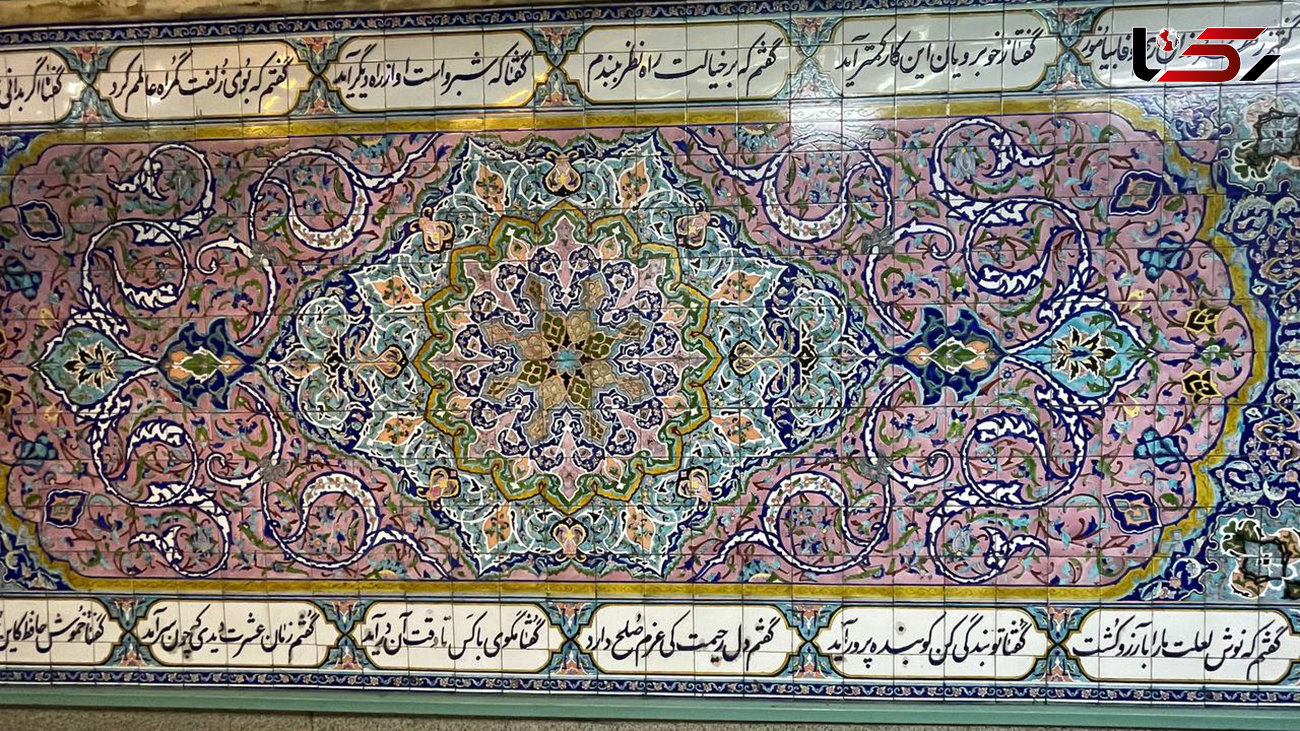 گفتا ز خوبرویان این کار کمتر آید
گفتم که بر خیالت راه نظر ببندم
گفتا که شبرو است او از ره دیگر آید
گفتم که بوی زلفت گمراه عالمم کرد
گفتا اگر بدانی
گفتم که نوش لعلت ما را بآرزو کشت
گفتا تو بندگی کن کو بنده پرور آید
گفتم دل رحیمت کی عزم صلح دارد
گفتا مگوی با کس تا وقت آن درآید
گفتم زمان عشرت دیدی که چون سرآمد
گفتا خموش حافظ کاین
رکنا